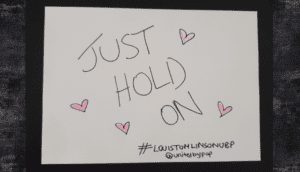 JUST
HOLD
ON
#LOUISTOMLINSONUBP
@unitedbypop